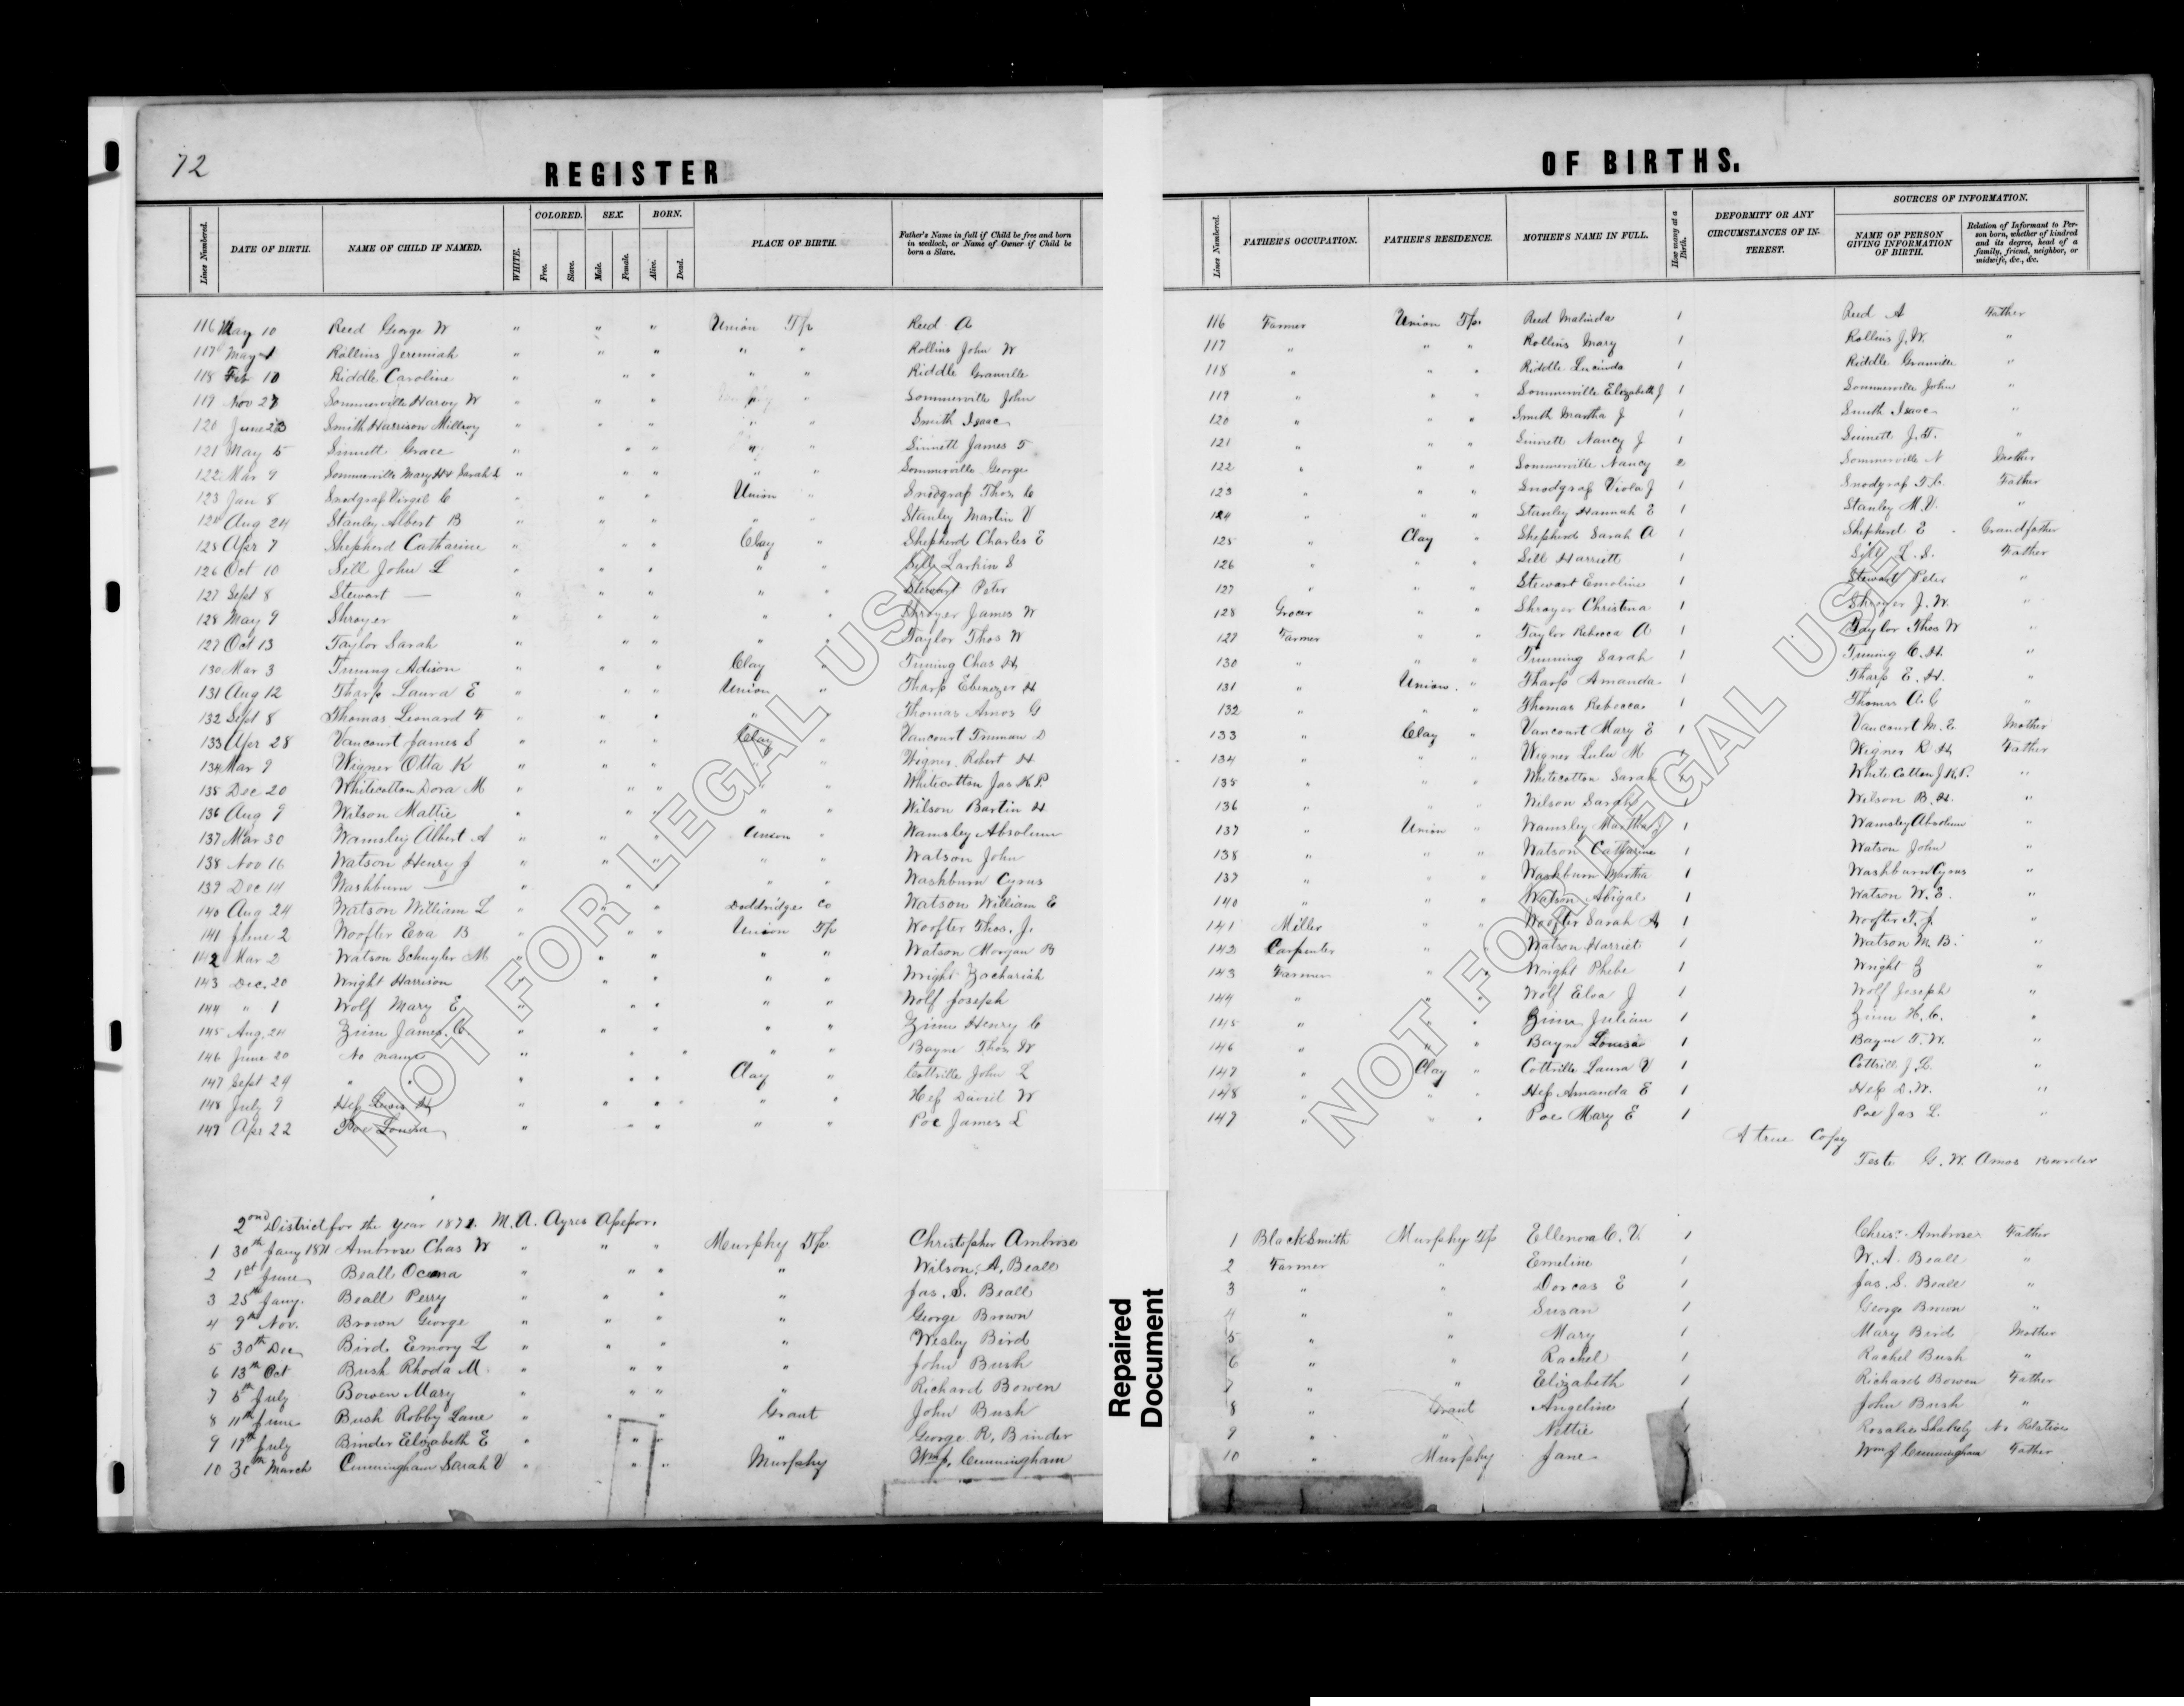 72
REGISTER OF BIRTHS.
Lines Numbered. DATE OF BIRTH. NAME OF CHILD IF NAMED. WHITE. COLORED. Free. Slave. SEX. Male. Female. BORN. Alive. Dead. PLACE OF BIRTH. Father's Name in full if Child be free and born in wedlock, or Name of Owner if Child be born a Slave. Lines Numbered. FATHER'S OCCUPATION. FATHER'S RESIDENCE. MOTHER'S NAME IN FULL. How many at a Birth. DEFORMITY OR ANY CIRCUMSTANCES OF INTEREST. SOURCES OF INFORMATION. NAME OF PERSON GIVING INFORMATION OF BIRTH. Relation of Informant to Person born, whether of kindred and its degree, head of a family, friend, neighbor, or midwife, &c., &c.
116 May 10 Reed George W " " " Union Tp Reed A 116 Farmer Union Tp. Reed Malinda 1 Reed A Father
117 May 1 Rollins Jeremiah " " " " " Rollins John W 117 " " " Rollins Mary 1 Rollins J. W. "
118 Feb 10 Riddle Caroline " " " " " Riddle Granville 118 " " " Riddle Lucinda 1 Riddle Granville "
119 Nov 27 Sommerville Harvy W " " " " " Sommerville John 119 " " " Sommerville Elizabeth J 1 Sommerville John "
120 June 23 Smith Harrison Millroy " " " " " Smith Isaac 120 " " " Smith Martha J 1 Smith Isaac "
121 May 5 Sinnett Grace " " " " " Sinnett James 121 " " " Sinnett Nancy J 1 Sinnett J. F. "
122 Mar 9 Sommerville Mary & Sarah " " " " " Sommerville George 122 " " " Sommerville Nancy 2 Sommerville N Mother
123 Jan 8 Snodgraß Virgel C " " " Union " Snodgraß Thos C 123 " " " Snodgraß Viola J 1 Snodgraß T. C. Father
124 Aug 24 Stanley Albert B " " " " " Stanley Martin V 124 " " " Stanley Hannah E 1 Stanley M. V. "
125 Apr 7 Shepherd Catharine " " " Clay " Shepherd Charles E 125 " Clay " Shepherd Sarah A 1 Shepherd E Grandfather
126 Oct 10 Sell John L " " " " " Sell Larkin S 126 " " " Sell Harriett 1 Sell L. S. Father
127 Sept 8 Stewart — " " " " " Stewart Peter 127 " " " Stewart Emoline 1 Stewart Peter "
128 May 9 Shroyer " " " " " Shroyer James W 128 Grocer " " Shroyer Christena 1 Shroyer J. W. "
129 Oct 13 Taylor Sarah " " " " " Taylor Thos W 129 Farmer " " Taylor Rebecca A 1 Taylor Thos W "
130 Mar 3 Tuning Adison " " " Clay " Tuning Chas H. 130 " " " Tunning Sarah 1 Tuning C. H. "
131 Aug 12 Tharp Laura E " " " Union " Tharp Ebenezer H 131 " Union " Tharp Amanda 1 Tharp E. H. "
132 Sept 8 Thomas Leonard F " " " " " Thomas Amos G 132 " " " Thomas Rebecca 1 Thomas A. G "
133 Apr 28 Vancourt James S " " " Clay " Vancourt Truman D 133 " Clay " Vancourt Mary E 1 Vancourt M. E. Mother
134 Mar 9 Wigner Otta K " " " " " Wigner Robert H 134 " " " Wigner Lulu M 1 Wigner R H Father
135 Dec 20 Whitecotton Dora M " " " " " Whitecotton Jas K P. 135 " " " Whitecotton Sarah 1 White Cotton J. K. P. "
136 Aug 9 Wilson Mattie " " " " " Wilson Bartin H 136 " " " Wilson Sarah 1 Wilson B. H. "
137 Mar 30 Wamsley Albert A " " " Union " Wamsley Absolum 137 " Union " Wamsley Martha J 1 Wamsley Absolum "
138 Nov 16 Watson Henry J " " " " " Watson John 138 " " " Watson Catharine 1 Watson John "
139 Dec 14 Washburn — " " " " " Washburn Cyrus 139 " " " Washburn Martha 1 Washburn Cyrus "
140 Aug 24 Watson William L " " " Doddridge Co Watson William E 140 " " " Watson Abigal 1 Watson W. E. "
141 June 2 Woofter Ena B " " " Union Tp Woofter Thos. J. 141 Miller " " Woofter Sarah A 1 Woofter T. J. "
142 Mar 2 Watson Schuyler M " " " " " Watson Morgan B 142 Carpenter " " Watson Harriet 1 Watson M. B. "
143 Dec. 20 Wright Harrison " " " " Wright Zachariah 143 Farmer " " Wright Phebe 1 Wright Z "
144 " 1 Wolf Mary E " " " " " Wolf Joseph 144 " " " Wolf Elva J 1 Wolf Joseph "
145 Aug. 24 Zinn James C " " " " " Zinn Henry C 145 " " " Zinn Julian 1 Zinn H. C. "
146 June 20 No name " " " " " Bayne Thos W 146 " " " Bayne Louisa 1 Bayne T. W. "
147 Sept 29 " " " " " Clay " Cottrille John L 147 " Clay " Cottrille Laura V 1 Cottrill J. L. "
148 July 9 Heß Lewis H " " " " " Heß David W 148 " " " Heß Amanda E 1 Heß D. W. "
149 Apr 22 Poe Louisa " " " " " Poe James L 149 " " " Poe Mary E 1 Poe Jas L. "
A true Copy
Teste G. W. Amos Recorder
2ond District for the year 1871. M. A. Ayres Aßeßor.
1 30th Jany 1871 Ambrose Chas W " " " Murphy Tp Christopher Ambrose 1 BlackSmith Murphy Tp Ellenora C. V. 1 Chris. Ambrose Father
2 1st June Beall Ocena " " " " Wilson. A. Beall 2 Farmer " Emeline 1 W. A. Beall "
3 25th Jany. Beall Perry " " " " Jas. S. Beall 3 " " Dorcas E 1 Jas. S. Beall "
4 9th Nov. Brown George " " " " George Brown 4 " " Susan 1 George Brown "
5 30th Dec Bird. Emory L " " " " Wesley Bird 5 " " Mary 1 Mary Bird Mother
6 13th Oct Bush Rhoda M. " " " " John Bush 6 " " Rachel 1 Rachel Bush "
7 5th July Bowen Mary " " " " Richard Bowen 7 " " Elizabeth 1 Richard Bowen Father
8 11th June Bush Robby Lane " " " Grant John Bush 8 " Grant Angeline 1 John Bush "
9 19th July Binder Elizabeth E " " " " George R. Binder 9 " " Nettie 1 Rosalie Shakely No Relation
10 30th March Cunningham Sarah V " " " Murphy Wm J. Cunningham 10 " Murphy Jane Wm J Cunningham Father
Repaired Document
NOT FOR LEGAL USE
NOT FOR LEGAL USE